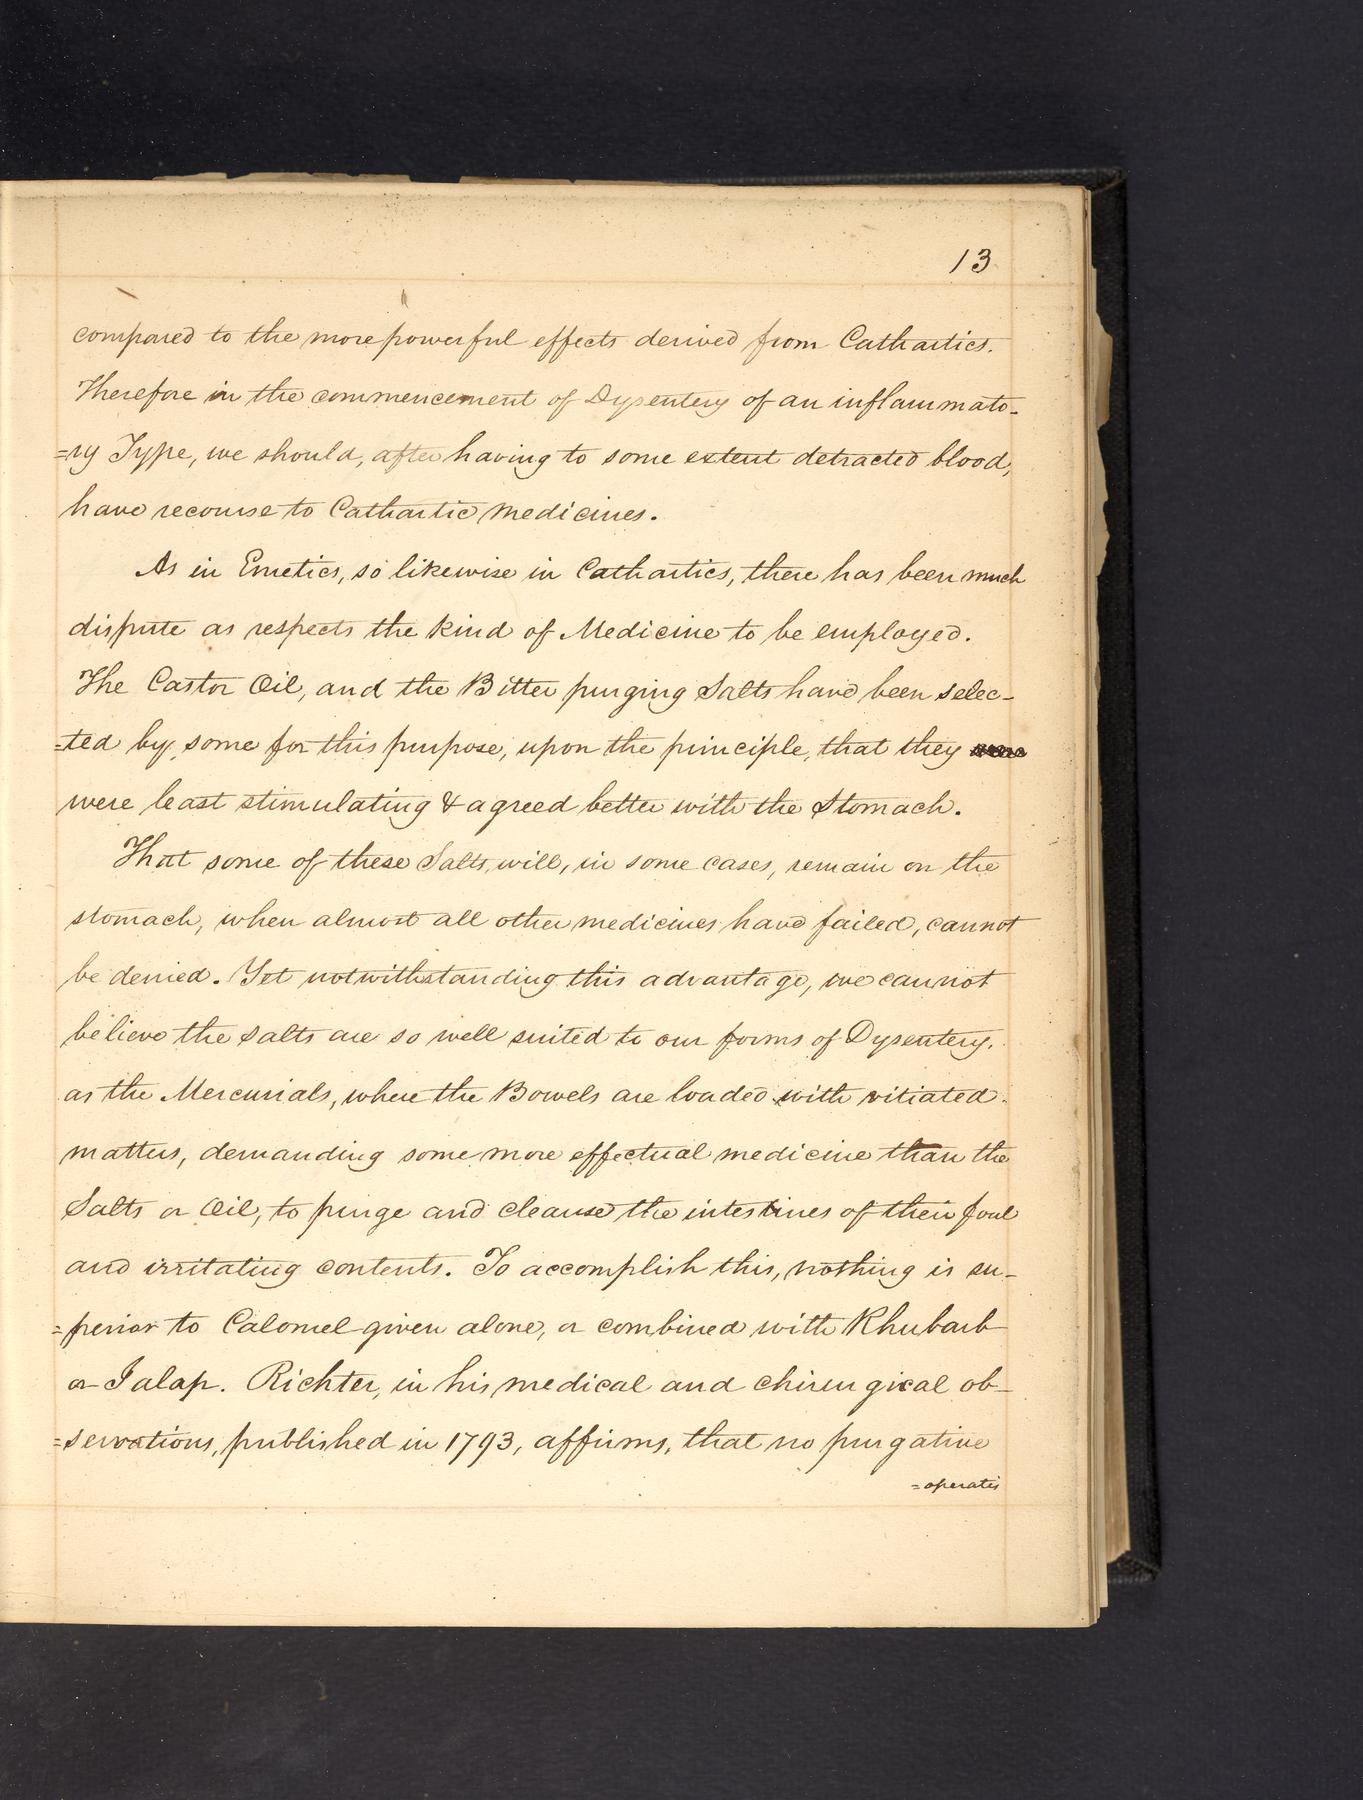 13
compared to the more powerful effects derived from Cathartics.
Therefore in the commencement of Dysentery of an inflammato-
=ry Type, we should, after having to some extent detracted blood,
have recourse to Cathartic medicines.
As in Emetics, so likewise in Cathartics, there has been much
dispute as respects the kind of Medicine to be employed.
The Castor Oil, and the Bitter purging Salts have been selec-
=ted by some for this purpose, upon the principle, that they
were least stimulating & agreed better with the Stomach.
That some of these Salts, will, in some cases, remain on the
stomach, when almost all other medicines have failed, cannot
be denied. Yet notwithstanding this advantage, we cannot
believe the salts are so well suited to our forms of Dysentery,
as the Mercurials, where the Bowels are loaded with vitiated
matters, demanding some more effectual medicine than the
Salts or Oil, to purge and cleanse the intestines of their foul
and irritating contents. To accomplish this, nothing is su-
=perior to Calomel given alone, or combined with Rhubarb
or Jalap. Richter, in his medical and chirurgical ob-
=servations, published in 1793, affirms, that no purgative
=operates